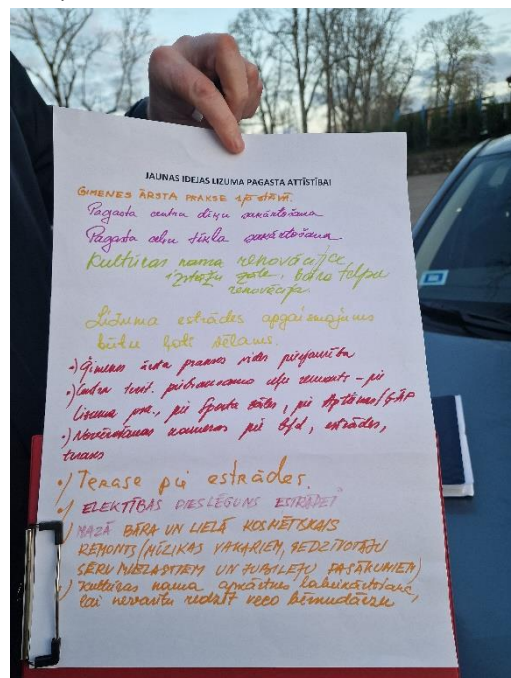 JAUNAS IDEJAS LIZUMA PAGASTA ATTĪSTĪBAI
ĢIMENES ĀRSTA PRAKSE 1. STĀVĀ.
Pagasta centra dīķu sakārtošana
Pagasta ceļu tīkla sakārtošana
Kultūras nama renovācija,
izstāžu zāle, bāra telpu
renovācija.
Lizuma estrādes apgaismojums
būtu ļoti vēlams.
•) Ģimenes ārsta prakses vides pieejamība
•) Centra terit. piebraucamo ceļu remonts - pie
Lizuma psk., pie Sporta zāles, pie Aptiekas/
•) Novērošanas kameras pie estrādes,
•) Terase pie estrādes.
•) ELEKTĪBAS PIESLĒGUMS ESTRĀDEI
•) MAZĀ BĀRA UN LIELĀ KOSMĒTISKAIS
REMONTS (MŪZIKAS VAKARIEM, IEDZĪVOTĀJU
SĒRU MIELASTIEM UN JUBILEJU PASĀKUMIEM)
•) Kultūras nama apkārtnes labiekārtošana,
lai nevarētu redzēt veco bērnudārzu,